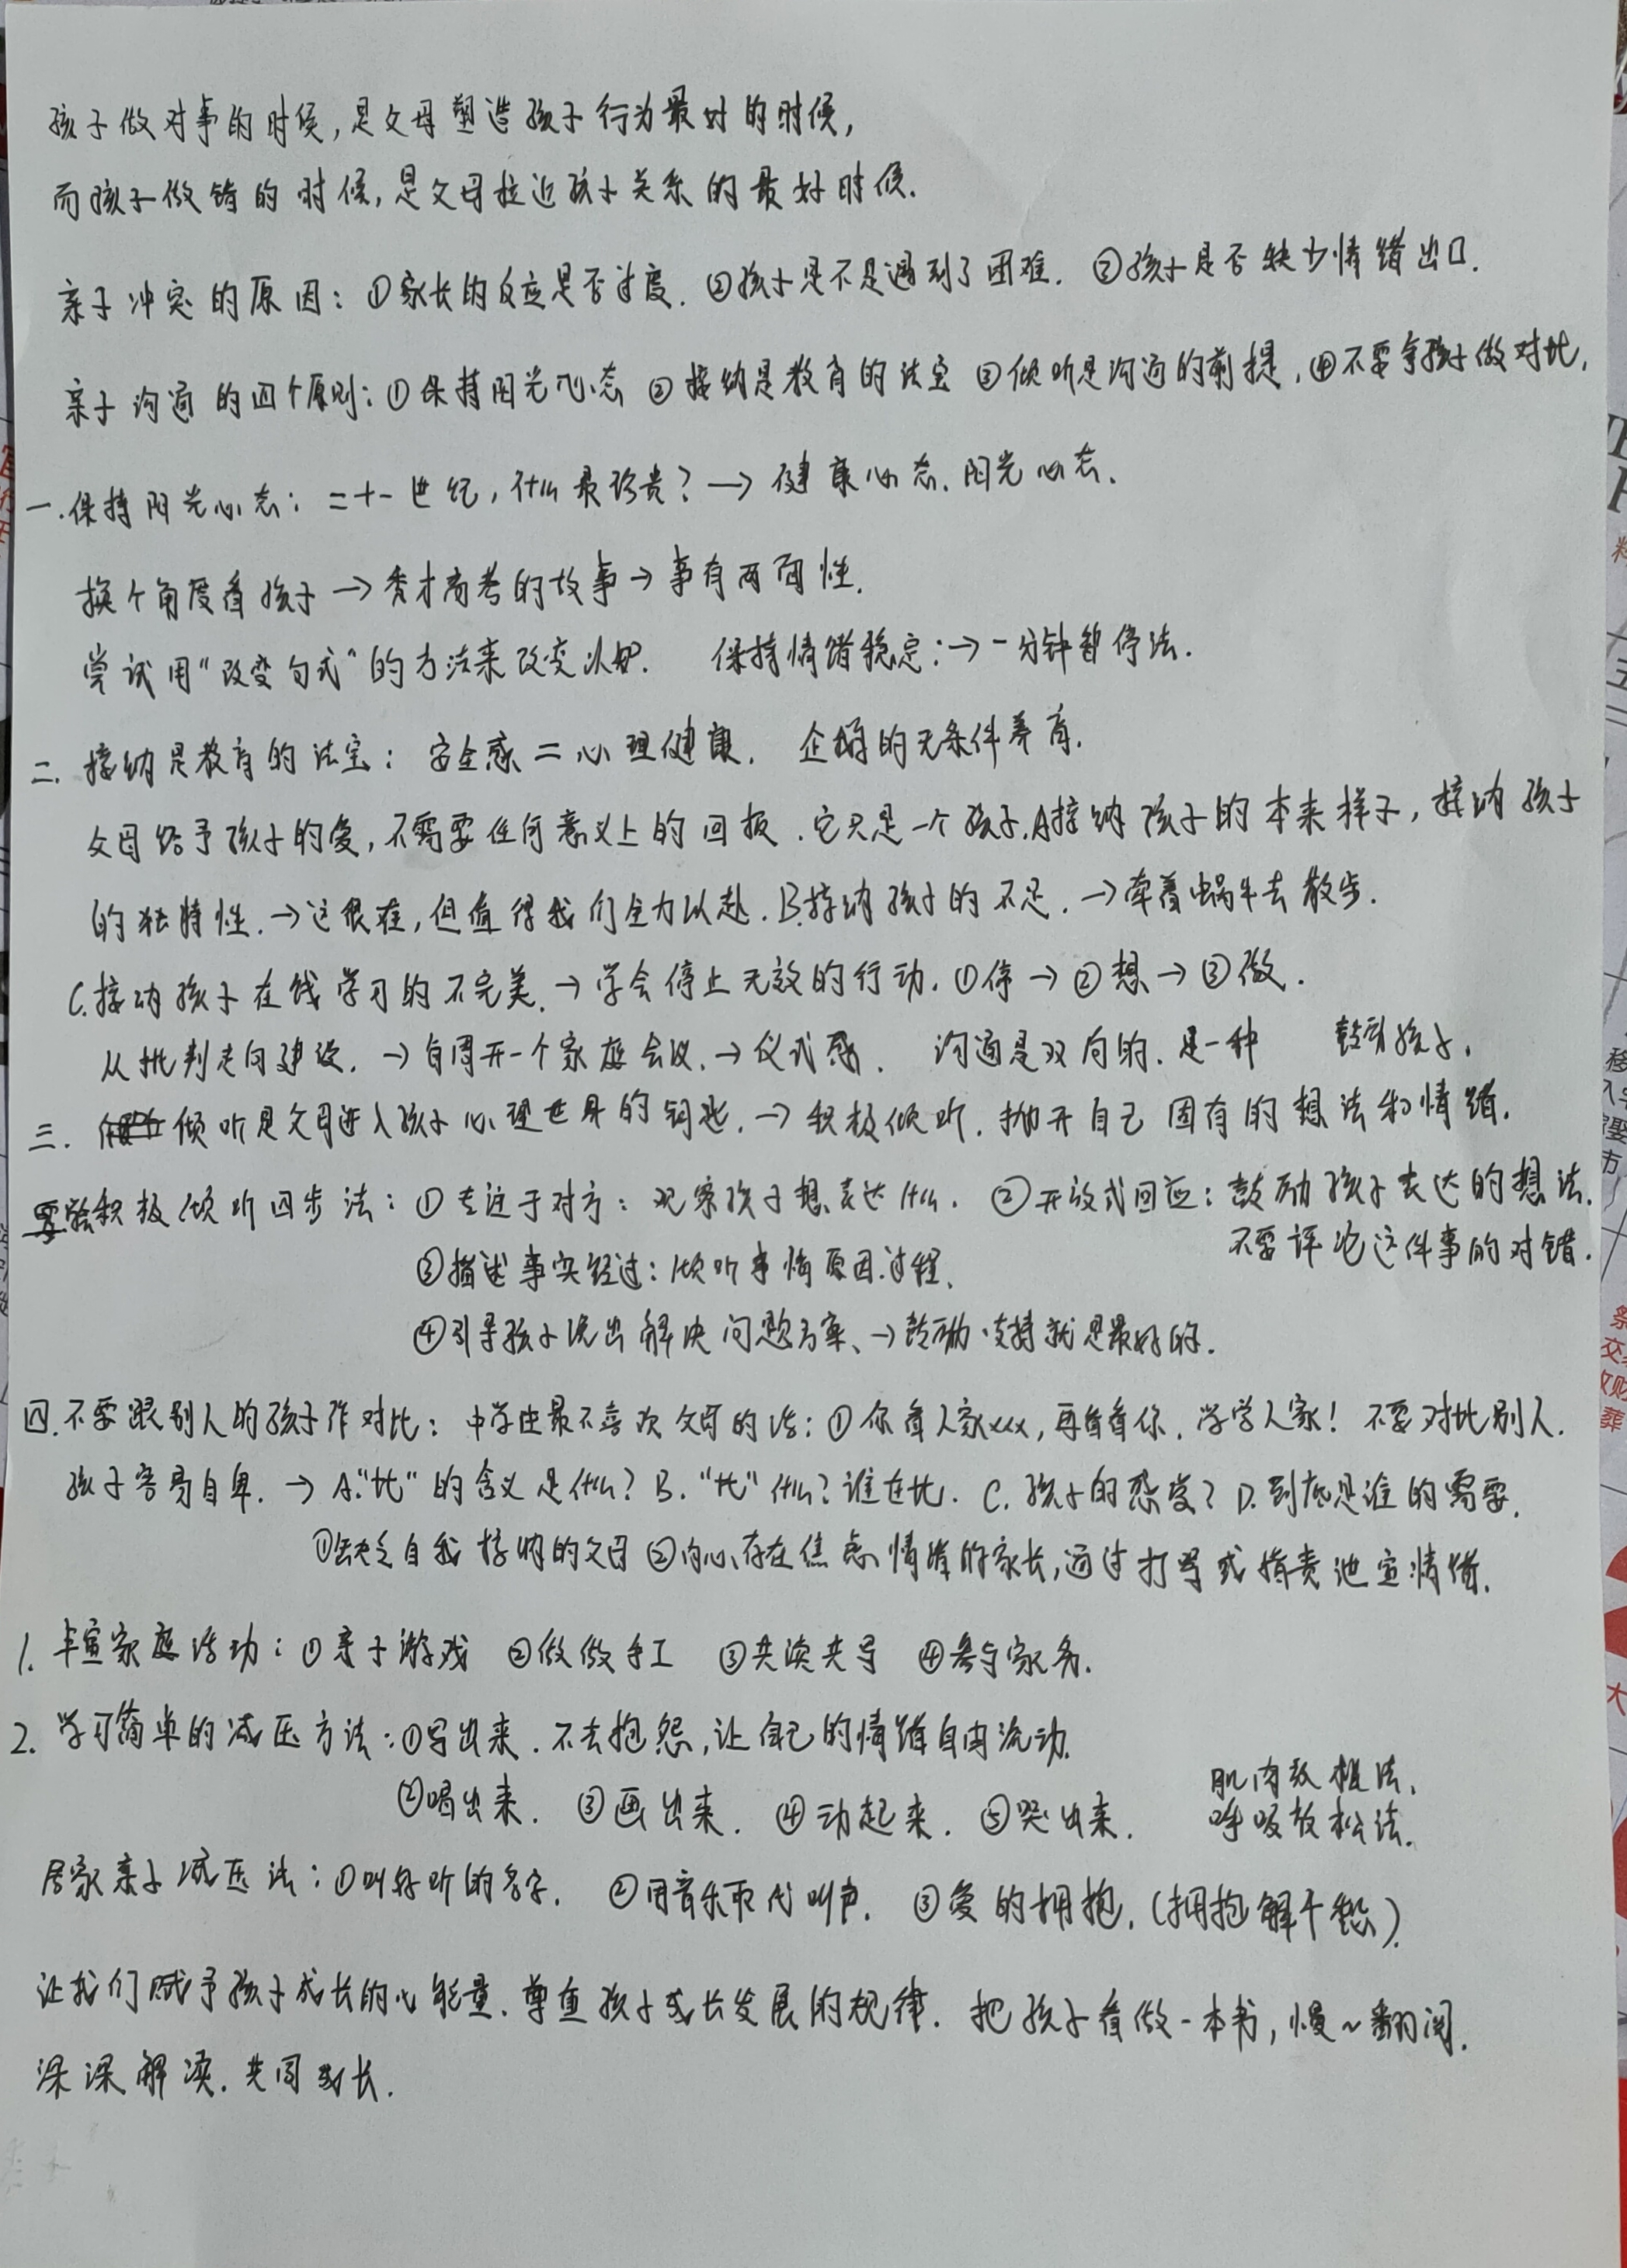 孩子做对事的时候,是父母塑造孩子行为最好的时候,
而孩子做错的时候,是父母拉近孩子关系的最好时候.
亲子冲突的原因:①家长的反应是否过度.②孩子是不是遇到了困难.③孩子是否缺少情绪出口.
亲子沟通的四个原则:①保持阳光心态 ②接纳是教育的法宝 ③倾听是沟通的前提,④不要拿孩子做对比,
一.保持阳光心态:二十一世纪,什么最珍贵?→健康心态.阳光心态.
换个角度看孩子→秀才高考的故事→事有两面性.
尝试用“改变句式”的方法来改变认知. 保持情绪稳定:→一分钟暂停法.
二.接纳是教育的法宝:安全感=心理健康. 企鹅的无条件养育.
父母给予孩子的爱,不需要任何意义上的回报.它只是一个孩子.A接纳孩子的本来样子,接纳孩子
的独特性.→这很难,但值得我们全力以赴.B.接纳孩子的不足.→牵着蜗牛去散步.
C.接纳孩子在线学习的不完美.→学会停止无效的行动.①停→②想→③做.
从批判走向建设.→每周开一个家庭会议.→仪式感. 沟通是双向的.是一种 鼓励孩子.
三. 倾听是父母进入孩子心理世界的钥匙.→积极倾听.抛开自己固有的想法和情绪.
积极倾听四步法:①专注于对方:观察孩子想表达什么.②开放式回应:鼓励孩子表达的想法.
不要评论这件事的对错.
③描述事实经过:倾听事情原因.过程.
④引导孩子说出解决问题方案、→鼓励·支持就是最好的.
四.不要跟别人的孩子作对比:中学生最不喜欢父母的话:①你看人家xxx,再看看你.学学人家!不要对比别人.
孩子容易自卑.→A.“比”的含义是什么?B.“比”什么?谁在比.C.孩子的感受?D.到底是谁的需要.
①缺乏自我接纳的父母②内心存在焦虑情绪的家长,通过打骂或指责泄宣情绪.
1.丰富家庭活动:①亲子游戏 ②做做手工 ③共读共写 ④参与家务.
2.学习简单的减压方法:①写出来.不去抱怨,让自己的情绪自由流动.
②唱出来.③画出来.④动起来.⑤哭出来. 肌肉放松法.
呼吸放松法.
居家亲子减压法:①叫好听的名字.②用音乐取代叫声.③爱的拥抱.(拥抱解千愁).
让我们赋予孩子成长的心能量.尊重孩子成长发展的规律.把孩子看做一本书,慢~翻阅.
深深解读.共同成长.